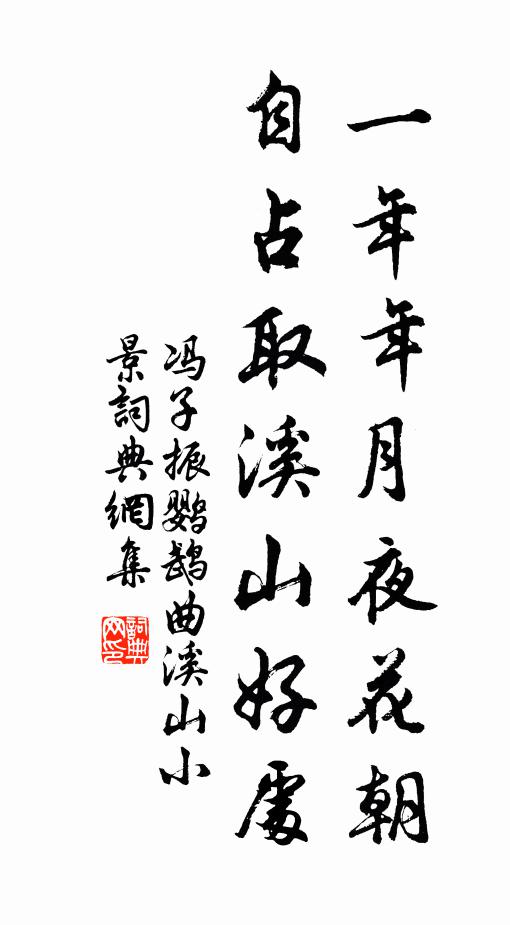 一年年月夜花朝
自占取溪山好處
冯子振鹦鹉曲溪山小
景詞典網集
詞典网印